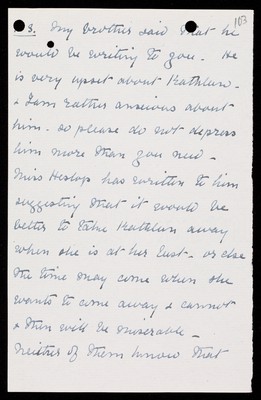 103
s. My brother said that he
would be writing to you. He
is very upset about Kathleen -
& I am rather anxious about
him. so please do not depress
him more than you need -
Miss Heslop has written to him
suggesting that it would be
better to take Kathleen away
when she is at her best - or else
the time may come when she
wants to come away & cannot
& then will be miserable -
Neither of them know that